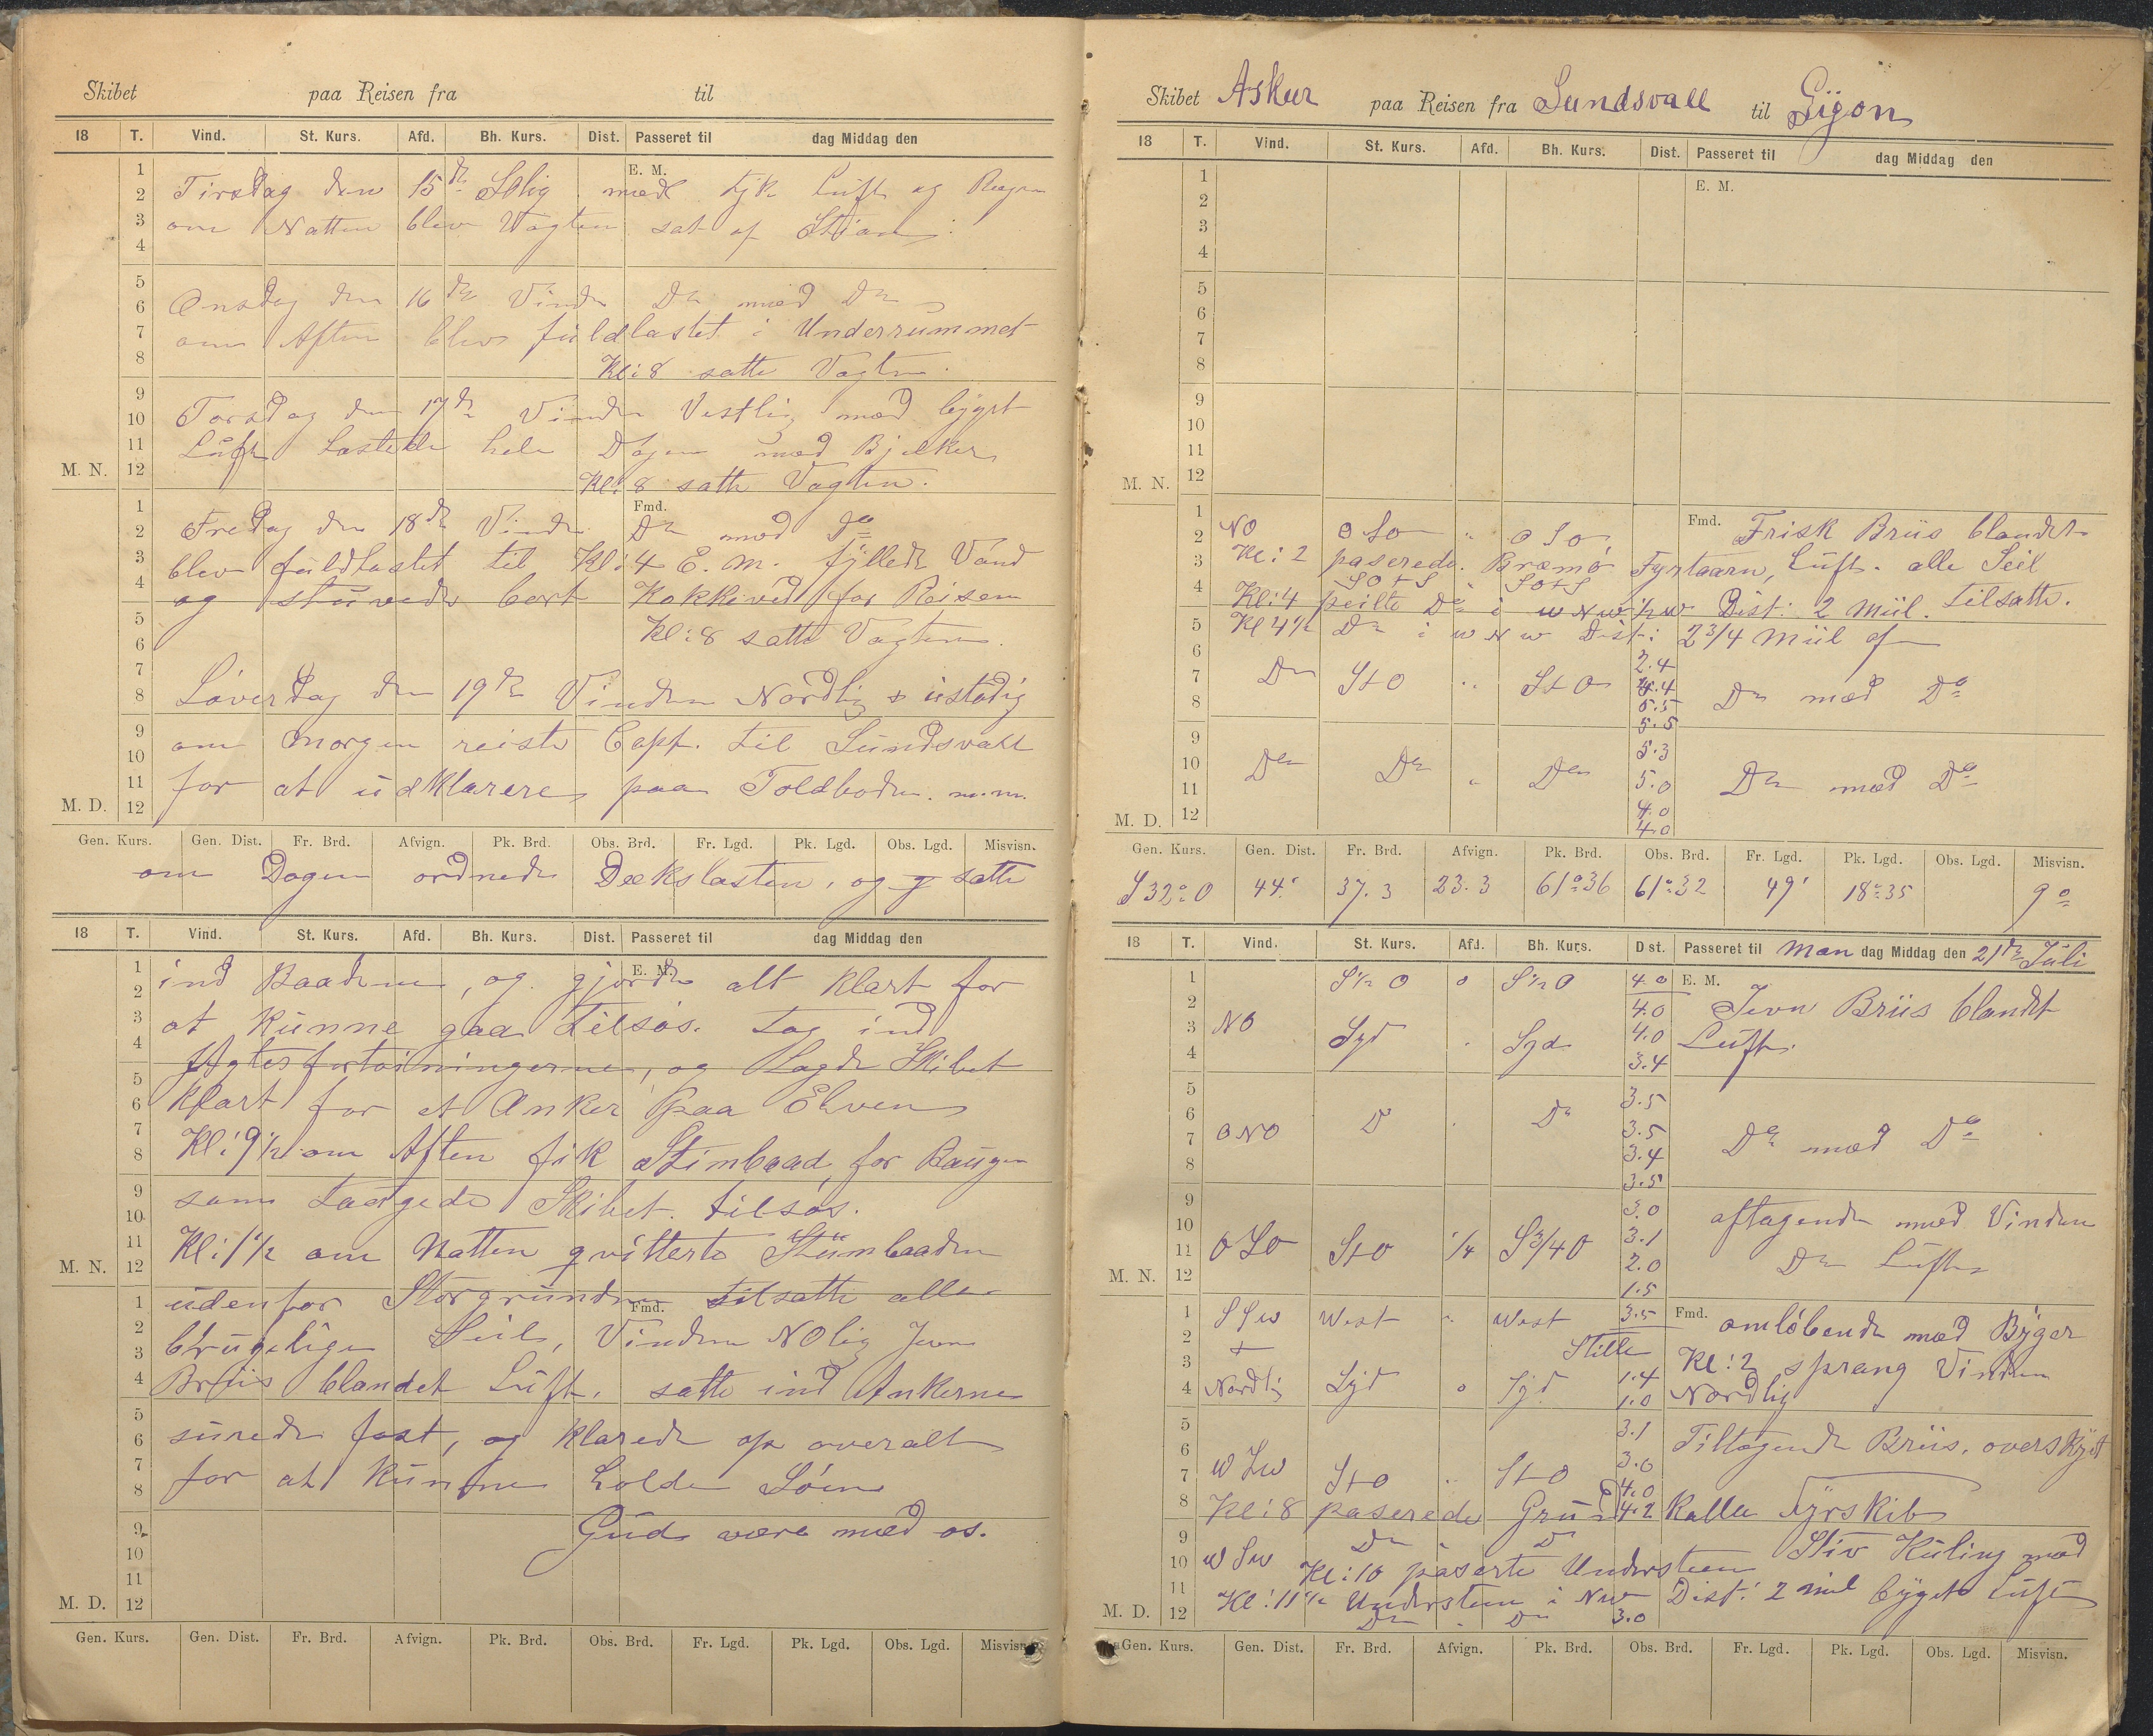 Skibet paa Reisen fra til
18 T. Vind. St. Kurs. Afd. Bh. Kurs. Dist. Passeret til dag Middag den
E. M.
Tirsdag den 15de SOlig med tyk Luft og Regn
om Natten blev Vagten sat af
Onsdag den 16de Vinden Do med Do
om Aften blev fuldlastet i Underrummet
Kl: 8 satte Vagten.
Torsdag den 17de Vinden Vestlig med byget
Luft Lastede hele Dagen med Bjelker
M. N. Kl: 8 satte Vagten.
Fmd.
Fredag den 18de Vinden Do med Do
blev fuldlastet til Kl: 4 E. M. fyllede Vand
og stuvede bort Kokkeved for Reisen
Kl: 8 satte Vagten.
Løverdag den 19de Vinden Nordlig & ustadig
om Morgen reiste Capt. til Sundsvall
for at udklarere paa Toldboden. m.m.
M. D.
Gen. Kurs. Gen. Dist. Fr. Brd. Afvign. Pk. Brd. Obs. Brd. Fr. Lgd. Pk. Lgd. Obs. Lgd. Misvisn.
om Dagen ordnede Dækslasten, og satte
18 T. Vind. St. Kurs. Afd. Bh. Kurs. Dist. Passeret til dag Middag den
E. M.
ind Baadene, og gjorde alt klart for
at kunne gaa tilsøs. tog ind
Agterfortøiningerne, og Lagde Skibet
klart for et Anker paa Elven
Kl: 9½ om Aften fik Stimbaad for Baugen
som taugede Skibet tilsøs.
Kl: 1½ om Natten qvitterte Stümbaaden
M. N.
udenfor Storgrundene tilsatte alle
Fmd.
brugelige Seil, Vinden NOlig Jevn
Briis blandet Luft. satte ind Ankerne
surede fast, og klarede op overalt
for at kunne holde Søen
Gud være med os.
M. D.
Gen. Kurs. Gen. Dist. Fr. Brd. Afvign. Pk. Brd. Obs. Brd. Fr. Lgd. Pk. Lgd. Obs. Lgd. Misvisn.
Skibet Askur paa Reisen fra Sundsvall til Gijon
18 T. Vind. St. Kurs. Afd. Bh. Kurs. Dist. Passeret til dag Middag den
E. M.
M. N.
Fmd.
NO OSO " OSO Frisk Briis blandet
Kl: 2 paserede Bræmö Fyrtaarn, Luft. alle Seil
SOtS " SOtS
Kl: 4 peilte Do i WNW½W Dist: 2 Miil. tilsatte.
Kl 4½ Do i WNW Dist: 2 3/4 Miil af
2.4
Do StO " StO 4.4 Do med Do
5.5
5.5
5.3
Do Do " Do 5.0 Do med Do
4.0
M. D. 4.0
Gen. Kurs. Gen. Dist. Fr. Brd. Afvign. Pk. Brd. Obs. Brd. Fr. Lgd. Pk. Lgd. Obs. Lgd. Misvisn.
S 32° O 44' 37.3 23.3 61°36 61°32 49' 18°35 9°
18 T. Vind. St. Kurs. Afd. Bh. Kurs. Dist. Passeret til Man dag Middag den 21de Juli
S½O o S½O 4.0 E. M.
4.0 Jevn Briis blandt
NO Syd " Syd 4.0 Luft.
3.4
3.5
ONO Do " Do 3.5 Do med Do
3.4
3.5
3.0 aftagende med Vinden
OSO StO ¼ S3/4O 3.1
2.0 Do Luft
M. N. 1.5
SSW West " West 3.5 Fmd. omløbende med Byger
Stille Kl: 2 sprang Vinden
Nordlig Syd o Syd 1.4
1.0 Nordlig
3.1 Tiltagende Briis. overskyet
WSW StO " StO 3.0
4.0
Kl: 8 paserede Grund 4.2 Kalle Fyrskib
WSW Do " Do Stiv Kuling med
Kl: 10 paserte Understeen
Kl: 11½ Understeen i NW Dist: 2 Miil byget Luft
M. D. Do " Do 3.0
Gen. Kurs. Gen. Dist. Fr. Brd. Afvign. Pk. Brd. Obs. Brd. Fr. Lgd. Pk. Lgd. Obs. Lgd. Misvisn.